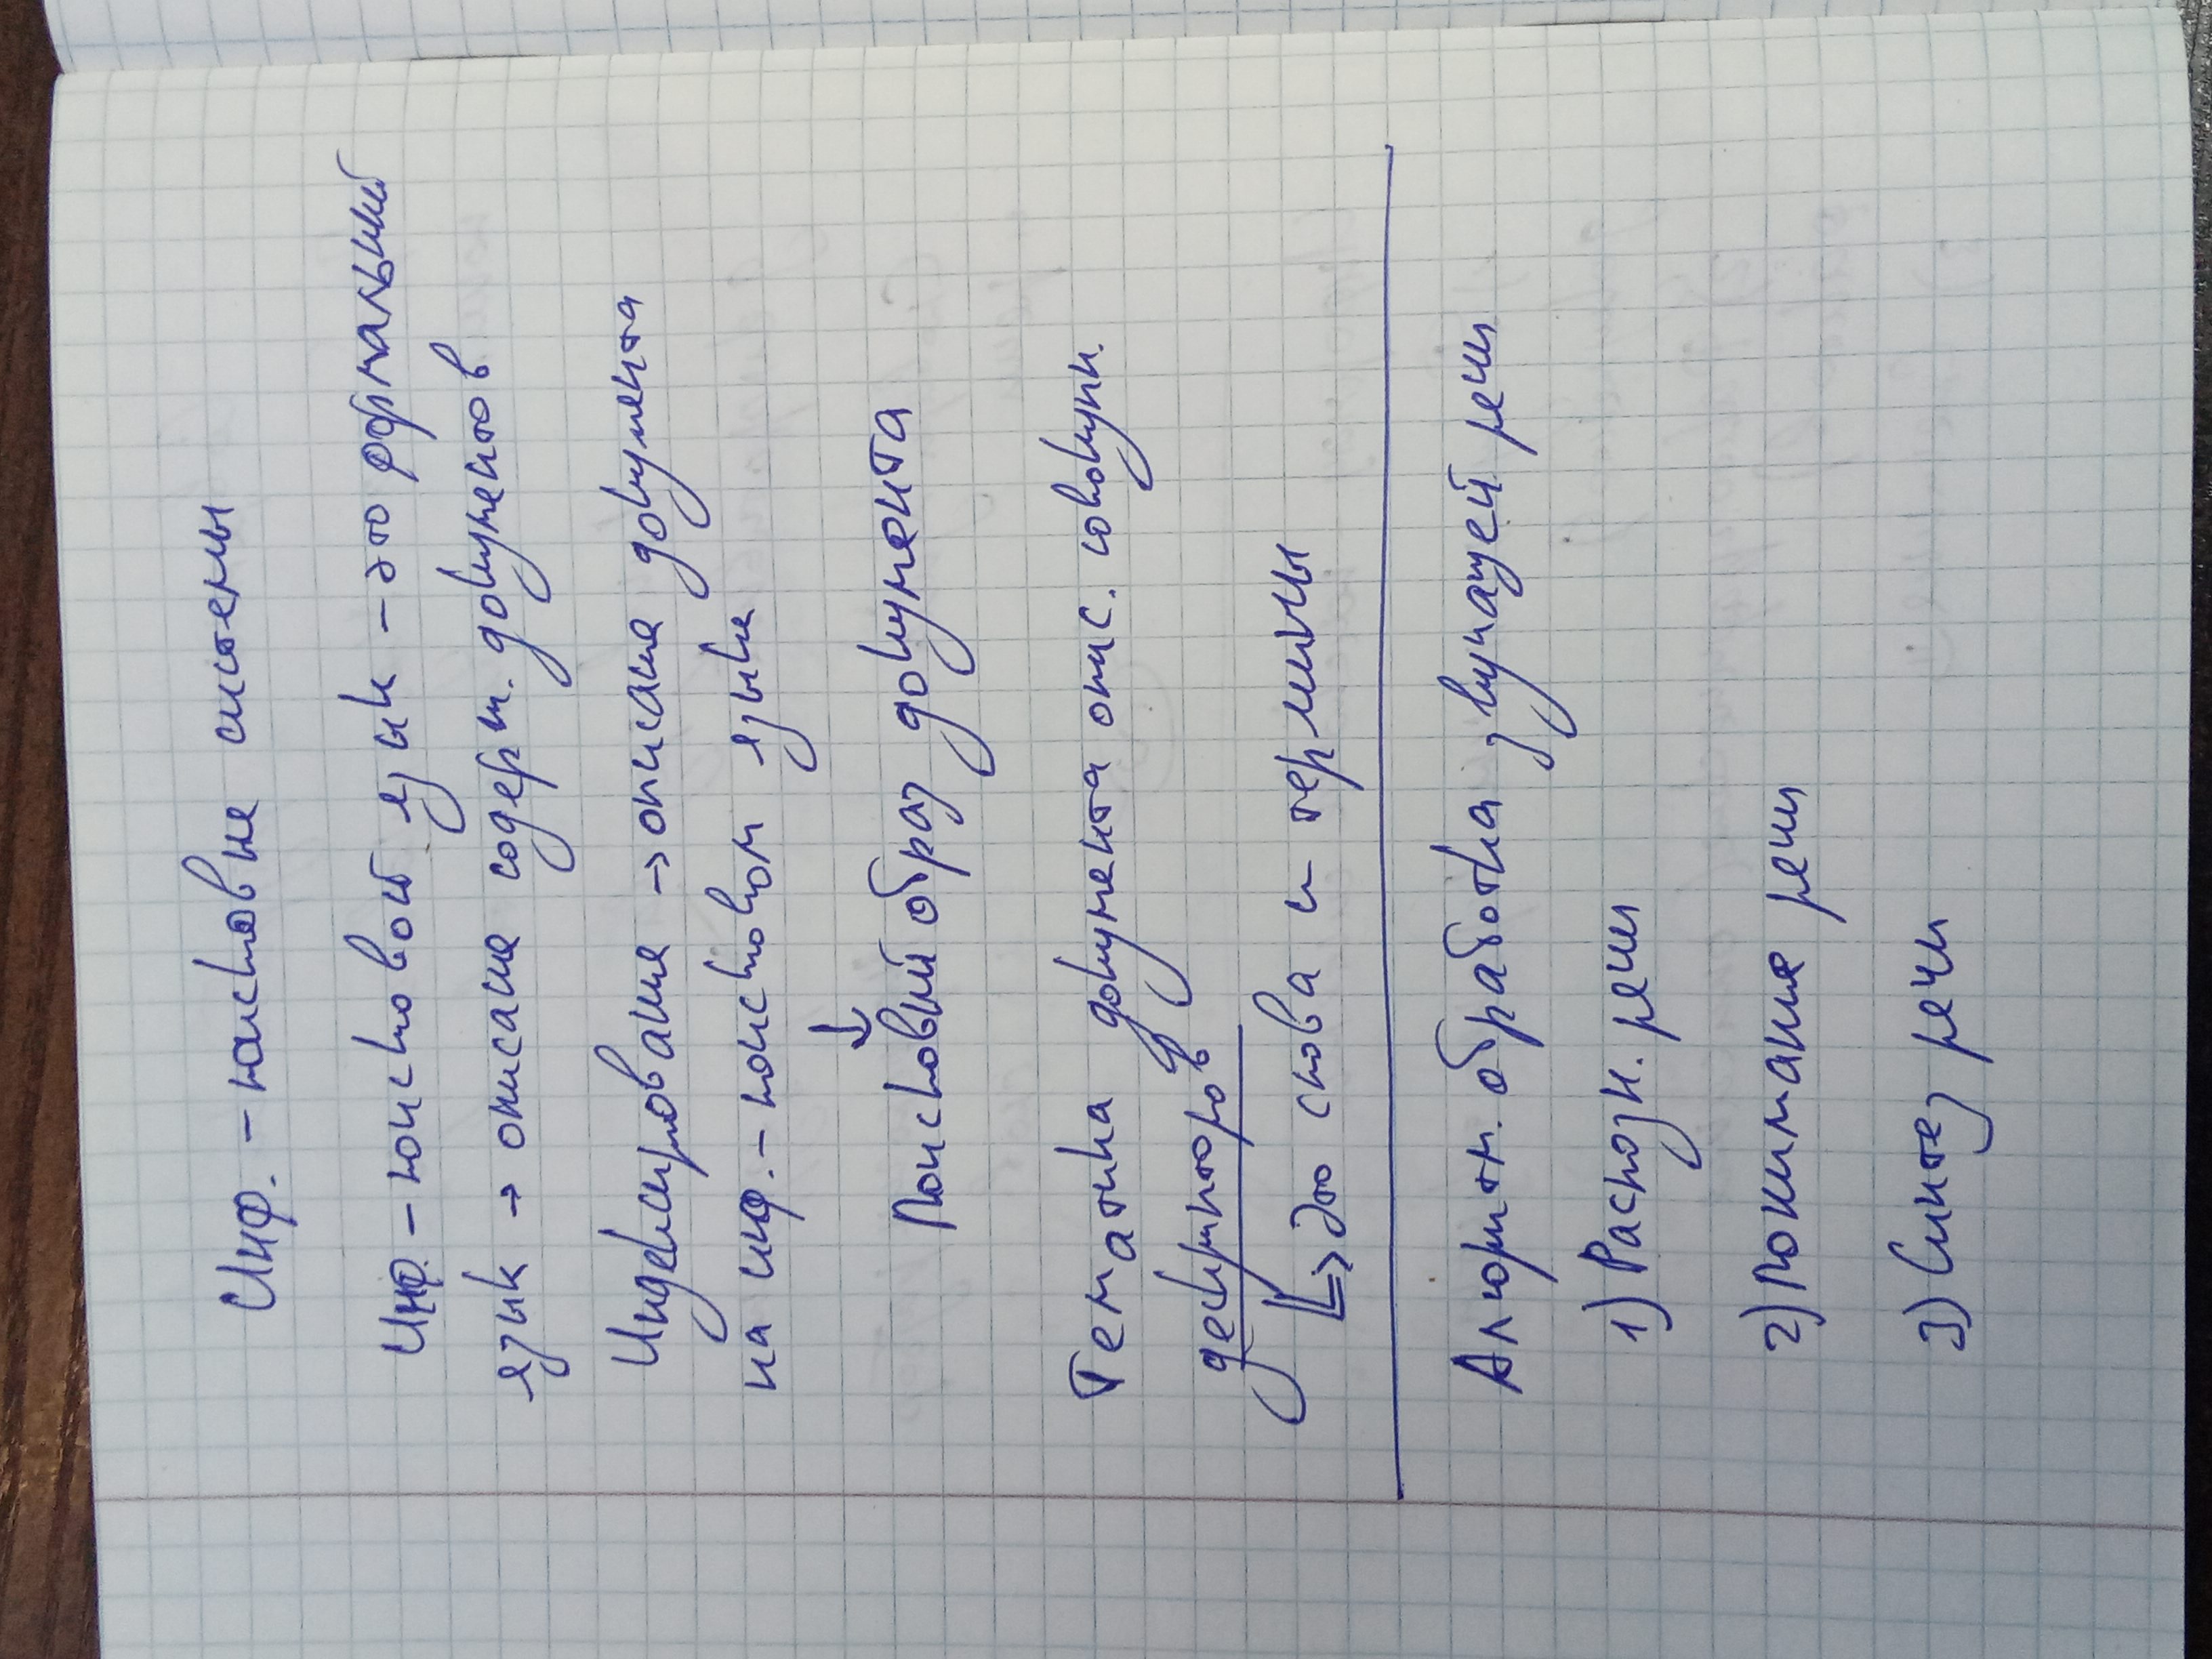 Инф. - поисковые системы
Инф. - поисковой язык - это формальный
язык → описание содерж. документов
Индексирование → описание документа
на инф. - поисковом языке
↓
Поисковый образ документа
Тематика документа опис. совокупн.
дескрипторов
↳ это слова и термины
Алгоритм. обработка звучащей речи
1) Распозн. речи
2) Понимание речи
3) Синтез речи